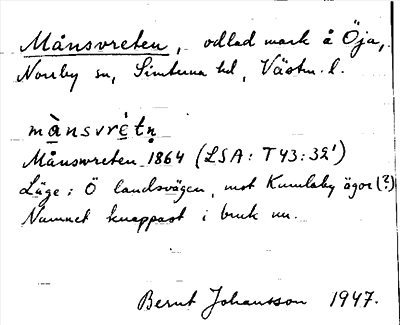 Månsvreten, odlad mark å Öja,
Norrby sn, Simtuna hd, Västm. l.
mànsvrétn̥
Månsvreten 1864 (LSA: T43:32¹)
Läge: Ö landsvägen, mot Kumlaby ägor (?)
Namnet knappast i bruk nu.
Bernt Johansson 1947.